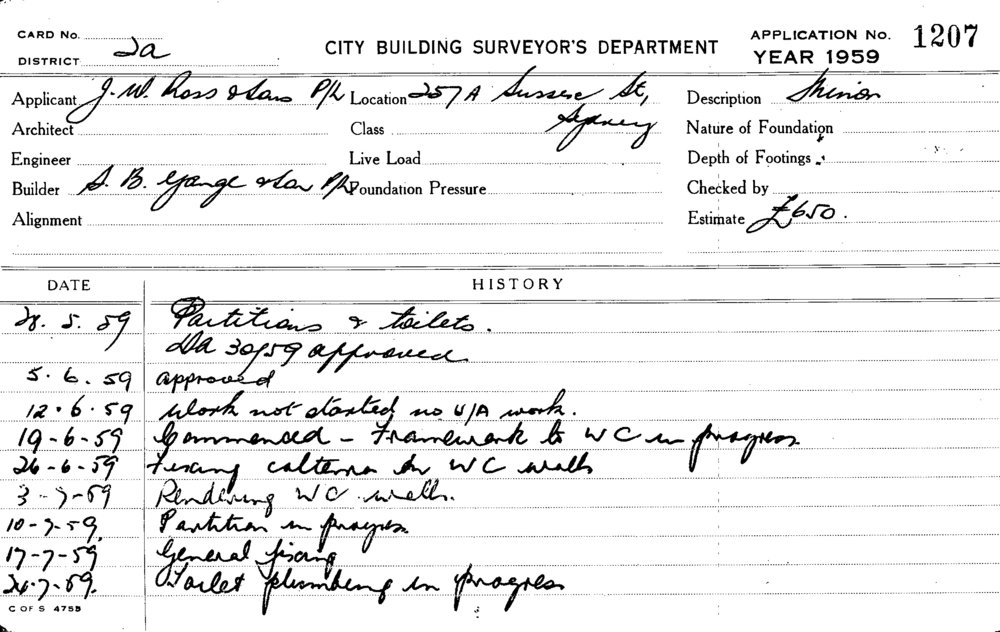 CARD No.
DISTRICT 2a
CITY BUILDING SURVEYOR'S DEPARTMENT
APPLICATION No. 1207
YEAR 1959
Applicant J. W. Ross & Sons P/L Location 257A Sussex St, Sydney
Description Minor
Architect
Class
Nature of Foundation
Engineer
Live Load
Depth of Footings
Builder S. B. Gange & Son P/L Foundation Pressure
Checked by
Alignment
Estimate £650.
DATE HISTORY
28. 5. 59 Partitions & toilets.
Da 30/59 approved
5. 6. 59 approved
12. 6. 59 Work not started no U/A work.
19-6-59 Commenced - Framework to WC in progress
26-6-59 Fixing WC walls
3-7-59 Rendering WC walls.
10-7-59. Partition in progress
17-7-59 General fixing
24.7.59. Toilet plumbing in progress
C OF S 4755